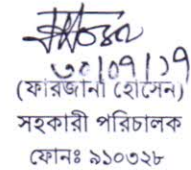 ৩০/০৭/১৭
(ফারজানা হোসেন)
সহকারী পরিচালক
ফোনঃ ৯১০৩২৮